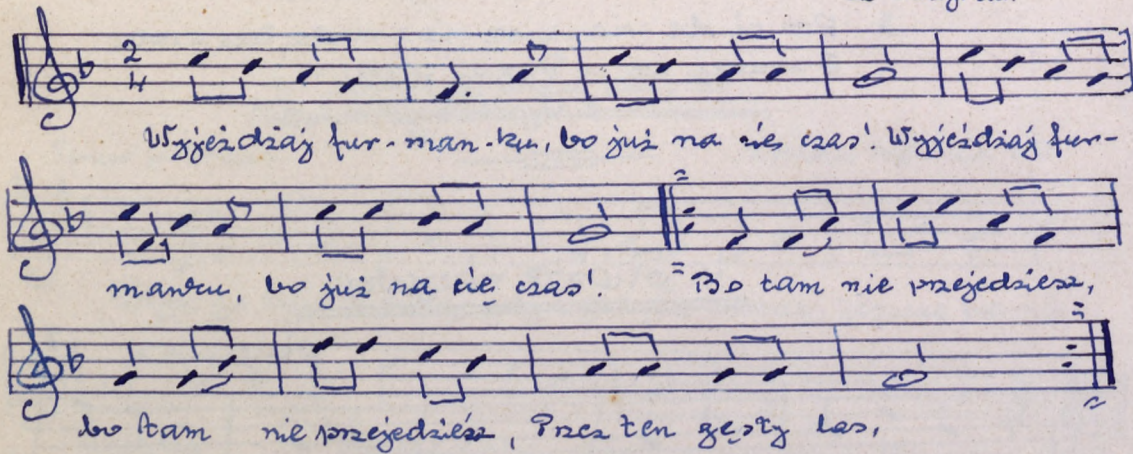 2
4
Wyjeżdżaj fur-man-ku, bo już na cię czas! Wyjeżdżaj fur-
manku, bo już na cię czas! Bo tam nie przejedziesz,
bo tam nie przejedziesz, Przez ten gęsty las,